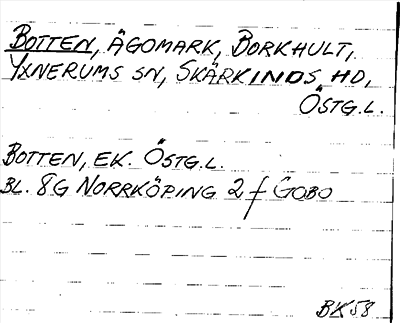 BOTTEN, ÄGOMARK, BORKHULT,
YXNERUMS SN, SKÄRKINDS HD,
ÖSTG.L.
BOTTEN, EK. ÖSTG.L.
BL. 8G NORRKÖPING 2 f GOBO
BK58